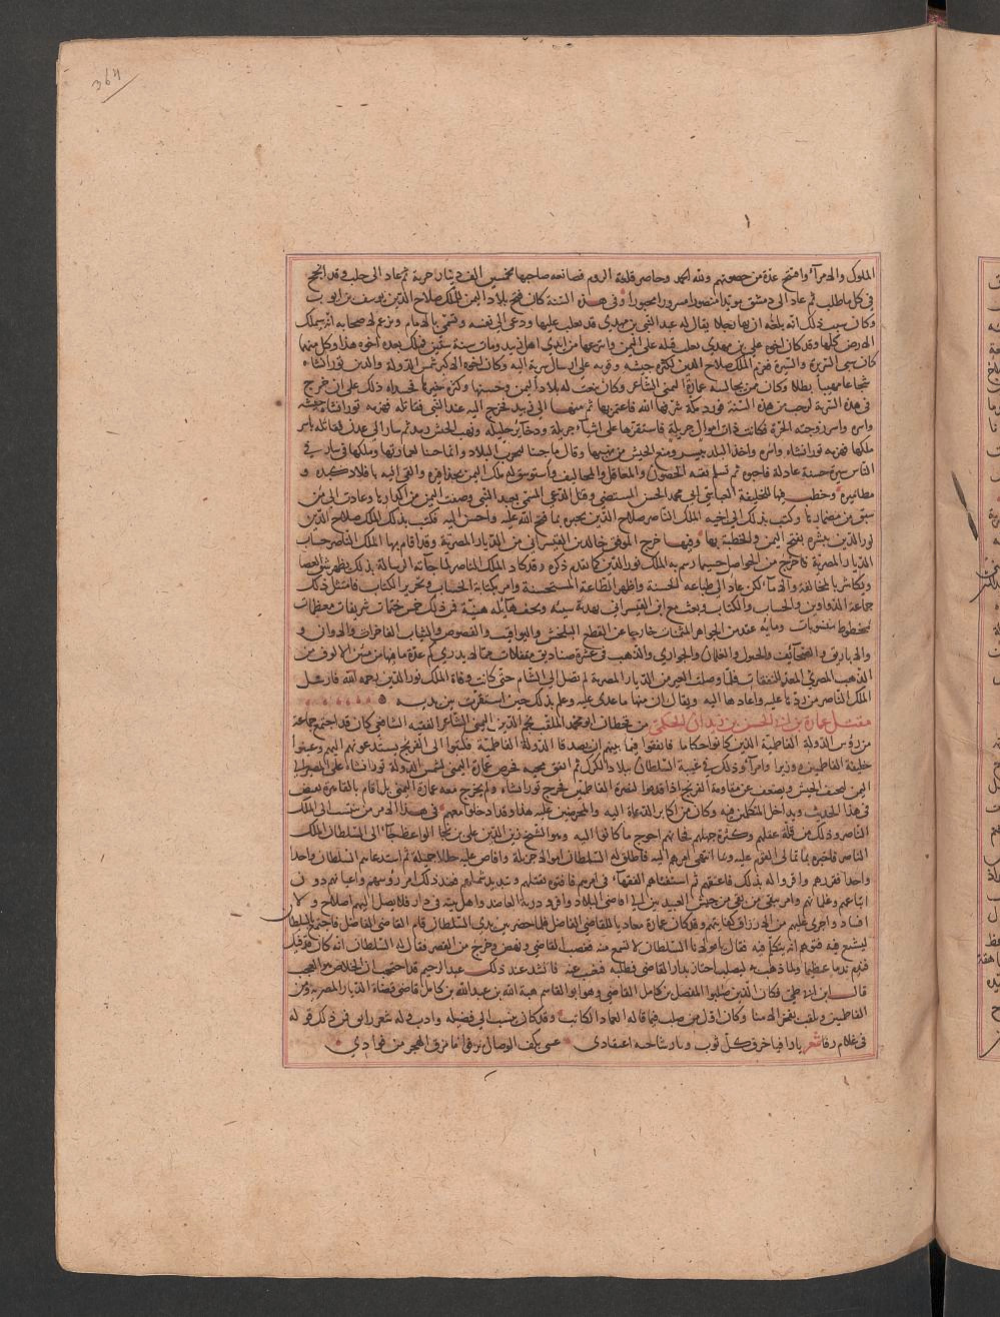 364
الملوك والامرآء وافتتح عدة من حصونهم ولله الحمد وحاصر قلعة الروم فصانعه صاحبها بخمسين الف دينار جزية ثم عاد الى حلب وقد انجح
فى كل ما طلب ثم عاد الى دمشق مويدا منصورا مسرورا محبورا وفى هذه السنة كان فتح بلاد اليمن للملك صلاح الدين يوسف بن ايوب
وكان سبب ذلك انه بلغه ان بها رجلا يقال له عبد النبى بن مهدى قد تغلب عليها ودعى الى نفسه وتسمى بالامام وزعم لاصحابه انه سيملك
الارض كلها وقد كان اخوه على بن مهدى تغلب قبله على اليمن وانتزعها من ايدى اهل زبيد ومات سنة ستين فملك بعده اخوه هذا وكل منهما
كان سيى السريرة والسيرة فعزم الملك صلاح الدين لكثرة جيشه وقوته على ارسال سرية اليه وكان اخوه الاكبر شمس الدولة والدين تورانشاه
شجاعا مهيبا بطلا وكان ممن يجالسه عمارة اليمنى الشاعر وكان ينعت له بلاد اليمن وحسنها وكثرة خيرها فحداه ذلك على ان خرج
فى هذه السرية لرجب من هذه السنة فورد مكة شرفها الله فاعتمر بها ثم منها الى زبيد فخرج اليه عبد النبى فقاتله فهزمه تورانشاه
واسره واسر زوجته الحرة وكانت ذات اموال جزيلة فاستقرها على اشياء جزيلة وذخاير جليلة ونهب الجيش زبيد ثم سار الى عدن فقاتله ياسر
ملكها فهزمه تورانشاه واسره واخذ البلد بيسير ومنع الجيش من نهبها وقال ما جئنا لنخرب البلاد وانما جئنا لعمارتها وملكها ثم سار فى
الناس سيرة حسنة عادلة فاحبوه ثم تسلم بقية الحصون والمعاقل والمخاليف واستوسق له ملك اليمن بحذافيره والقى اليه بافلاذ كبده و
مطاميره وخطب فيها للخليفة العباسى ابى محمد الحسن المستضى وقتل الدعى المسمى بعبد النبى وصفت اليمن من اكدارها وعادت الى ما
سبق من مضمارها وكتب بذلك الى اخيه الملك الناصر صلاح الدين يخبره بما فتح الله عليه واحسن اليه فكتب بذلك الملك صلاح الدين
نور الدين يبشره بفتح اليمن والخطبة بها وفيها خرج الموفق خالد بن القيسرانى من الديار المصرية وقد اقام بها الملك الناصر حساب
الديار المصرية وما خرج من الحواصل حسبما رسم به الملك نور الدين كما تقدم ذكره وقد كاد الملك الناصر لما جاءته الرسالة بذلك يظهر شق العصا
ويكاشر بالمخالفة والاباء لكن عاد الى طباعه الحسنة واظهر الطاعة المستحسنة وامر بكتابة الحساب وتحرير الكتاب فامتثل ذلك
جماعة الدواوين والحساب والكتاب وبعث مع ابن القيسرانى بهدية سنية وتحف هايلة هنية فمن ذلك خمس ختمات شريفات مغطات
بخطوط مستويات وماية عقد من الجواهر المثمنات خارجا عن القطع البلخش واليواقيت والفصوص والثياب الفاخرات والاوانى و
والاباريق والصحاف والخيول والغلمان والجوارى والذهب فى عشرة صناديق مقفلات مما لا يدرى كم عدة ما فيها من مئين الالوف من
الذهب المصرى المعد للنفقات فلما وصلت العير من الديار المصرية لم تصل الى الشام حتى كانت وفاة الملك نور الدين رحمه الله فارسل
الملك الناصر من ردها عليه واعادها اليه ويقال ان منها ما عدى عليه وعلم بذلك حين استقرت بين يديه
مقتل عمارة بن ابى الحسن بن زيدان الحكمى من قحطان ابو محمد الملقب بنجم الدين اليمنى الشاعر الفقيه الشافعى كان قد اجتمع جماعة
من رؤس الدولة الفاطمية الذين كانوا حكاما فاتفقوا فيما بينهم ان يعيدوا الدولة الفاطمية فكتبوا الى الفرنج يستدعونهم اليهم وعينوا
خليفة الفاطميين ووزيرا وامرآء وذلك فى غيبة السلطان ببلاد الكرك ثم اتفق مجيه فحرض عمارة اليمنى لشمس الدولة تورانشاه على المصير الى
اليمن ليضعف الجيش ويضعف عن مقاومة الفرنج اذا قدموا لنصرة الفاطميين فخرج تورانشاه ولم يخرج معه عمارة اليمنى بل اقام بالقاهرة يفيض
فى هذا الحديث ويداخل المتكلمين فيه وكان من اكابر الدعاة اليه والمحرضين عليه هذا وقد ادخلوا معهم فى هذا الامر من ينتسب الى الملك
الناصر وذلك من قلة عقلهم وكثرة جهلهم فخانهم احوج ما كانوا اليه وهو الشيخ زين الدين على بن نجا الواعظ جاء الى السلطان الملك
الناصر فاخبره بما تمالى القوم عليه وبما انتهى امرهم اليه فاطلق له السلطان اموالا جزيلة وافاض عليه حللا جميلة ثم استدعاهم السلطان واحدا
واحدا فقررهم واقروا له بذلك فاعتقلهم ثم استفتاهم الفقهاء فى امرهم فافتوه بقتلهم وتبديد شملهم فعند ذلك امر رؤسهم واعيانهم دون
اتباعهم وغلمانهم وامر بنفى من بقى من جيش العبيديين الى اقاصى البلاد وافرد ذرية العاضد واهل بيته فى دار فلا يصل اليهم اصلاح ولا
افساد واجرى عليهم من الارزاق كفايتهم وقد كان عمارة معاديا للقاضى الفاضل فلما حضر بين يدى السلطان قام القاضى الفاضل فاجتمع بالسلطان
ليشفع فيه فتوهم انه يتكلم فيه فقال يا مولانا السلطان لا تسمع منه فغضب القاضى ونهض وخرج من القصر فقال له السلطان انه كان قد شفع فيك
فندم ندما عظيما ولما ذهب به ليصلب اجتاز بدار القاضى فطلبه فتغيب عنه فانشد عند ذلك عبد الرحيم قد احتجب ان الخلاص هو العجب
قال ابن ابى طى وكان الذين صلبوا المفضل بن كامل القاضى وهو ابو القاسم هبة الله بن عبد الله بن كامل قاضى قضاة الديار المصرية زمن
الفاطميين ويلقب بفخر الامنا وكان اول من صلب فيما قاله العماد الكاتب وقد كان ينسب الى فضيله وادب وله شعر رايق فمن ذلك قوله
فى غلام رفا شعر يا رافيا خرق كل ثوب ويا رشا حبه اعتقادى عسى بكف الوصال ترفى ما مزق الهجر من فوادى